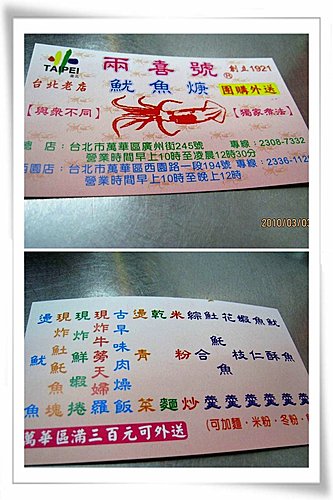 TAIPEI
兩喜號
®
創立1921
台北老店
魷魚焿
團購外送
【與衆不同】
【獨家療法】
店：台北市萬華區廣州街245號
專線：2308-7332
營業時間早上10時至凌晨12時30分
西園店：台北市萬華區西園路一段194號
專線：2336-112
營業時間早上10時至晚上12時
2010/03/0
魷魚羹
魚酥羹
蝦仁羹
花枝羹
魠魚羹
綜合羹
米粉炒
乾麵
燙青菜
古早味肉燥飯
現炸牛蒡天婦羅
現炸鮮蝦捲
現炸魠魚塊
燙魷魚
萬華區滿三百元可外送
(可加麵・米粉・冬粉・